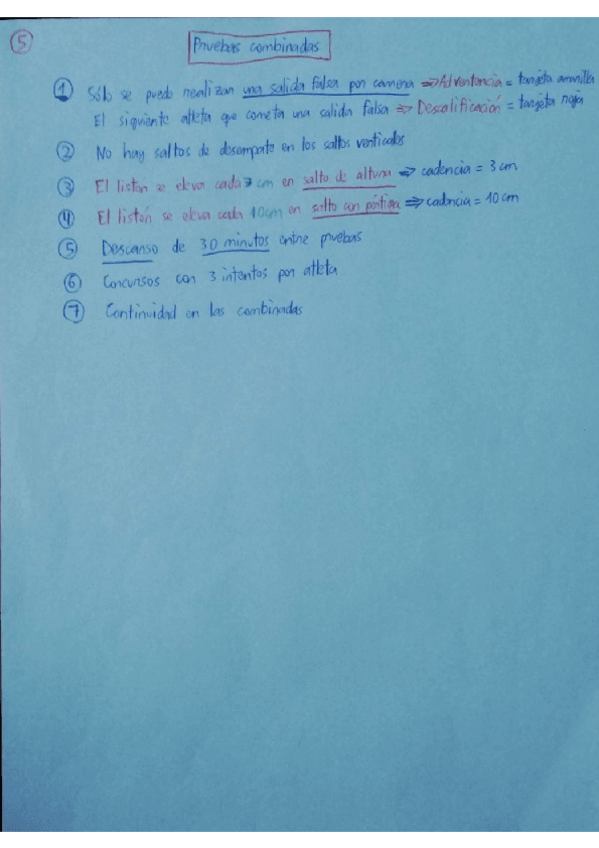 5
Pruebas combinadas
1 Sólo se puede realizar una salida falsa por carrera ⇒ Advertencia = tarjeta amarilla
El siguiente atleta que cometa una salida falsa ⇒ Descalificación = tarjeta roja
2 No hay saltos de desempate en los saltos verticales
3 El listón se eleva cada 3 cm en salto de altura ⇒ cadencia = 3 cm
4 El listón se eleva cada 10 cm en salto con pértiga ⇒ cadencia = 10 cm
5 Descanso de 30 minutos entre pruebas
6 Concursos con 3 intentos por atleta
7 Continuidad en las combinadas